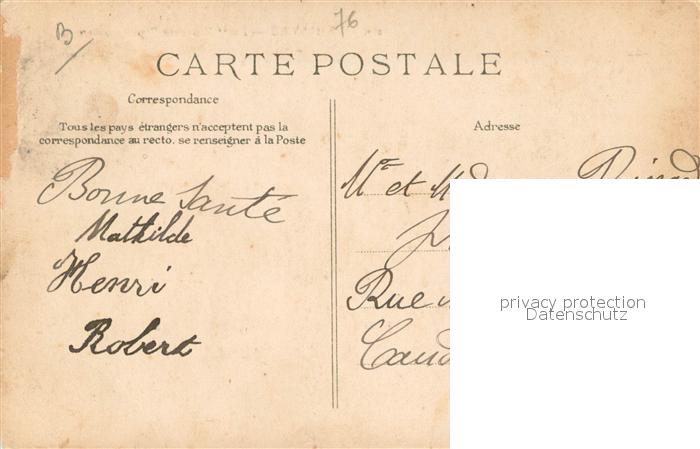 B
76
CARTE POSTALE
Correspondance
Tous les pays étrangers n'acceptent pas la
correspondance au recto, se renseigner à la Poste
Bonne Santé
Mathilde
Henri
Robert
Adresse
Mr et
Rue
privacy protection
Datenschutz